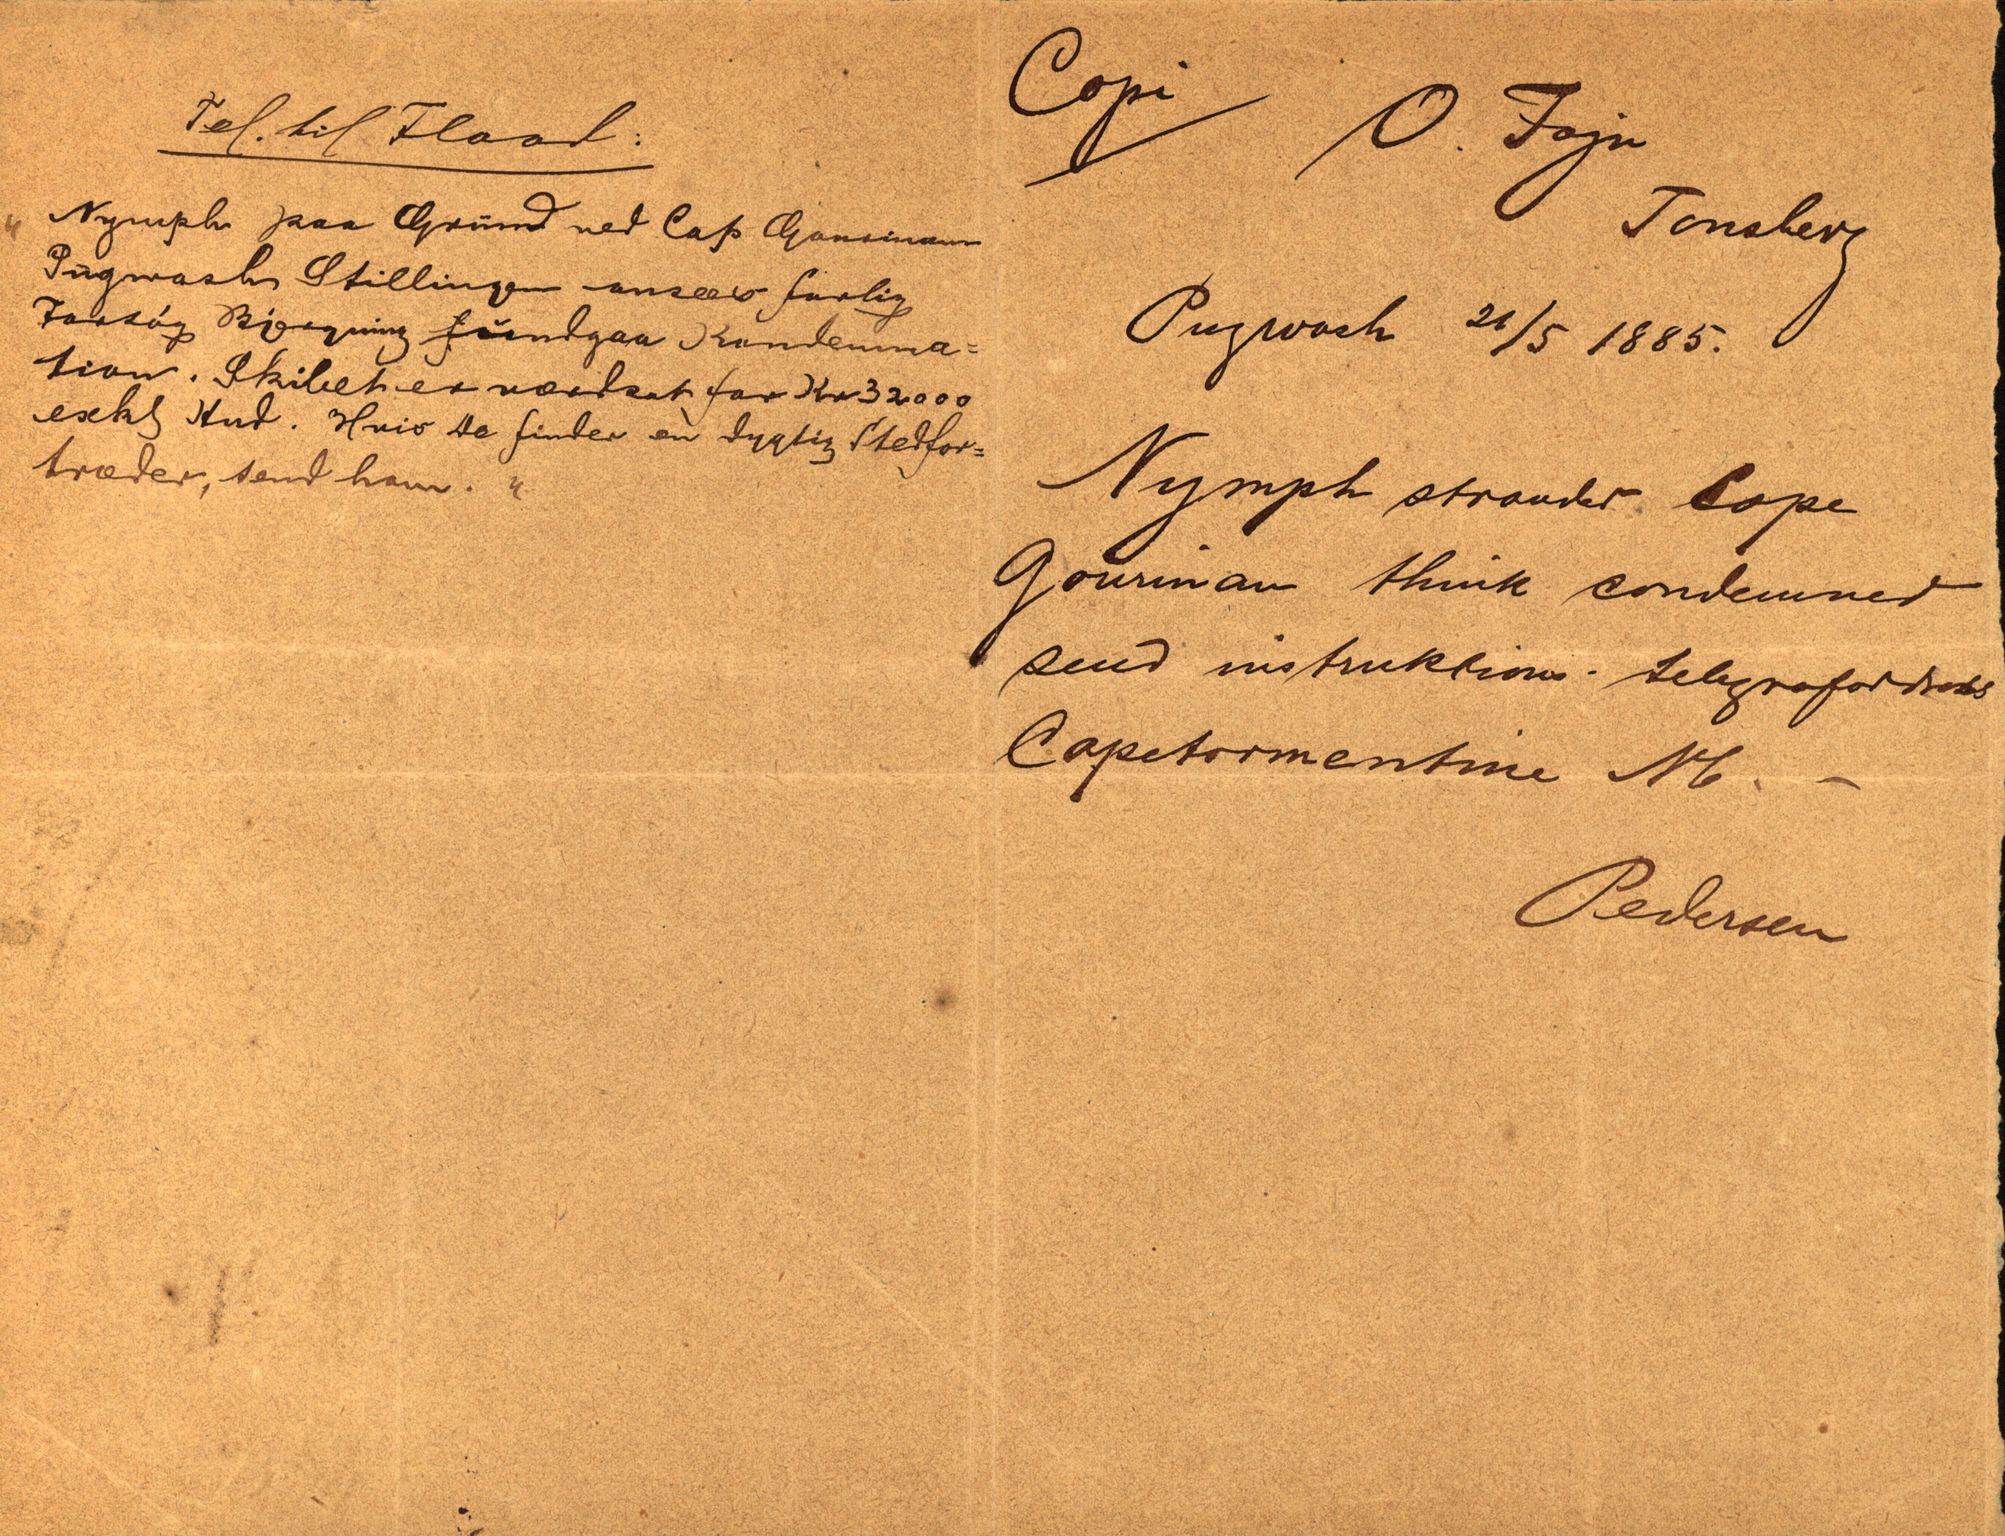 Tel. til Flood:
"Nymph paa Grund ved Cap Gourinam
Pugwash Stillingen ansees farlig
Forsög Bjergning undgaa Kondemna=
tion. Skibet er værdsat for Kr 32000
exkl Hud. Hvis De finder en dygtig Stedfor=
træder, send ham."
Copi
O. Foyn
Tonsberg
Pugwash 21/5 1885.
Nymph strandet Cape
Gourinau think condemned
send instruktions. telegrafadress
Capetormentine NB. –
Pedersen